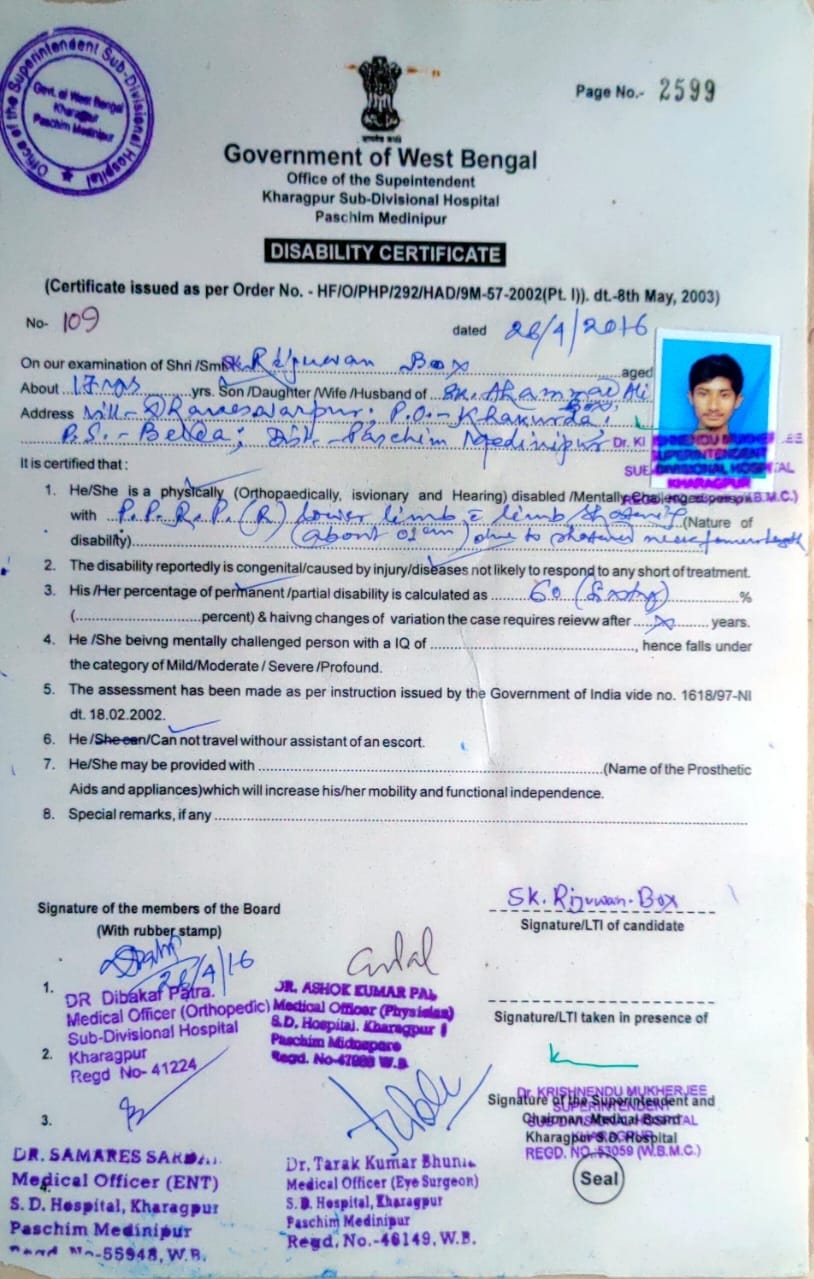 Office of the Superintendent Sub-Divisional Hospital
Govt. of West Bengal
Kharagpur
Paschim Medinipur
Page No.- 2599
Government of West Bengal
Office of the Supeintendent
Kharagpur Sub-Divisional Hospital
Paschim Medinipur
DISABILITY CERTIFICATE
(Certificate issued as per Order No. - HF/O/PHP/292/HAD/9M-57-2002(Pt. I)). dt.-8th May, 2003)
No- 109 dated 28/4/2016
On our examination of Shri /Smt Sk. Rijuwan Box aged
About 17 yrs yrs. Son /Daughter /Wife /Husband of Sk. Ahammad Ali
Box;
Address Vill- Dhaneswarpur. P.O.- Khakurda;
P.S.- Belda; Dist.- Paschim Medinipur
Dr. KRISHNENDU MUKHERJEE
SUPERINTENDENT
SUB-DIVISIONAL HOSPITAL
KHARAGPUR
(W.B.M.C.)
It is certified that :
1. He/She is a physically (Orthopaedically, isvionary and Hearing) disabled /Mentally Challenged person
with P.P.R.P. (R) lower limb limb (Nature of
disability) (about cm) due to
2. The disability reportedly is congenital/caused by injury/diseases not likely to respond to any short of treatment.
3. His /Her percentage of permanent /partial disability is calculated as 60 (Sixty) %
(..............................percent) & haivng changes of variation the case requires reievw after ...x... years.
4. He /She beivng mentally challenged person with a IQ of ..............................................., hence falls under
the category of Mild/Moderate / Severe /Profound.
5. The assessment has been made as per instruction issued by the Government of India vide no. 1618/97-NI
dt. 18.02.2002.
6. He /She can/Can not travel withour assistant of an escort.
7. He/She may be provided with ...............................................................................(Name of the Prosthetic
Aids and appliances)which will increase his/her mobility and functional independence.
8. Special remarks, if any ...............................................................................
Signature of the members of the Board
(With rubber stamp)
SK. Rijuwan. Box
Signature/LTI of candidate
28/4/16
1. DR Dibakar Patra.
Medical Officer (Orthopedic)
Sub-Divisional Hospital
2. Kharagpur
Regd No- 41224
DR. ASHOK KUMAR PAL
Medical Officer (Physician)
S.D. Hospital. Kharagpur
Paschim Midnapore
Regd. No-47988 W.B
Signature/LTI taken in presence of
3.
Dr. KRISHNENDU MUKHERJEE
Signature of the Superintendent and
SUPERINTENDENT
Chairman, Medical Board
SUB-DIVISIONAL HOSPITAL
KHARAGPUR
Kharagpur S.D. Hospital
REGD. NO. 53059 (W.B.M.C.)
Seal
DR. SAMARES SARDAR
Medical Officer (ENT)
4.
S. D. Hospital, Kharagpur
Paschim Medinipur
Regd No-55948, W.B.
Dr. Tarak Kumar Bhunia
Medical Officer (Eye Surgeon)
S.D. Hospital, Kharagpur
Paschim Medinipur
Regd, No.-46149, W.B.